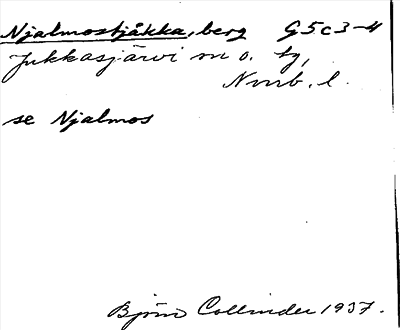 Njalmostjåkka, berg G5c3-4
Jukkasjärvi sn o. tg,
Nmb. l.
se Njalmos
Björn Collinder 1937.